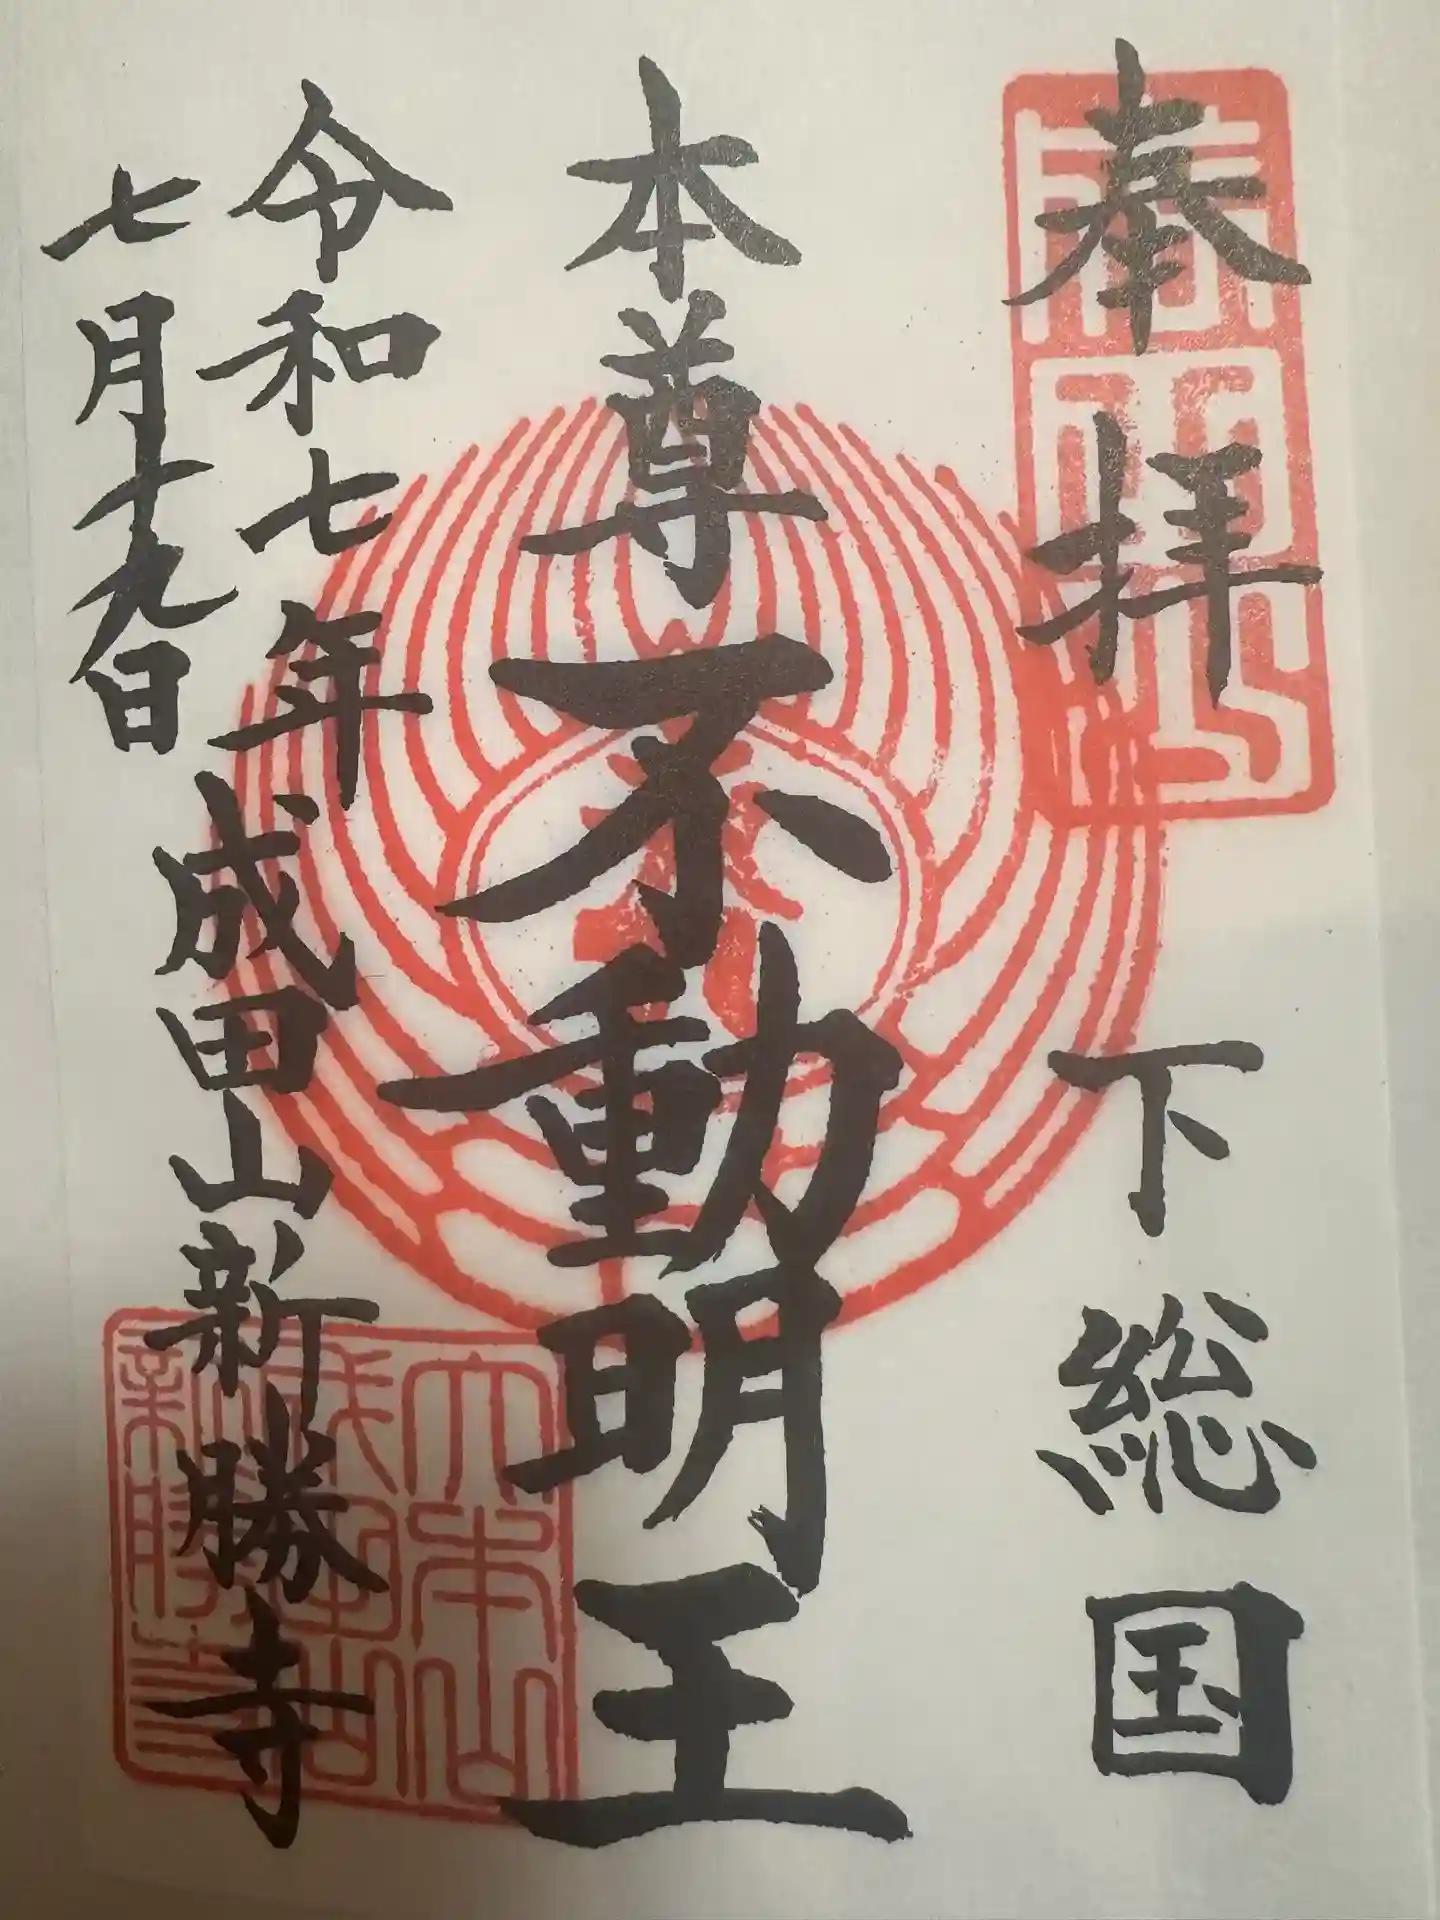 奉拝 下総国
本尊不動明王
令和七年成田山新勝寺
七月十九日
大本山
成田山
新勝寺